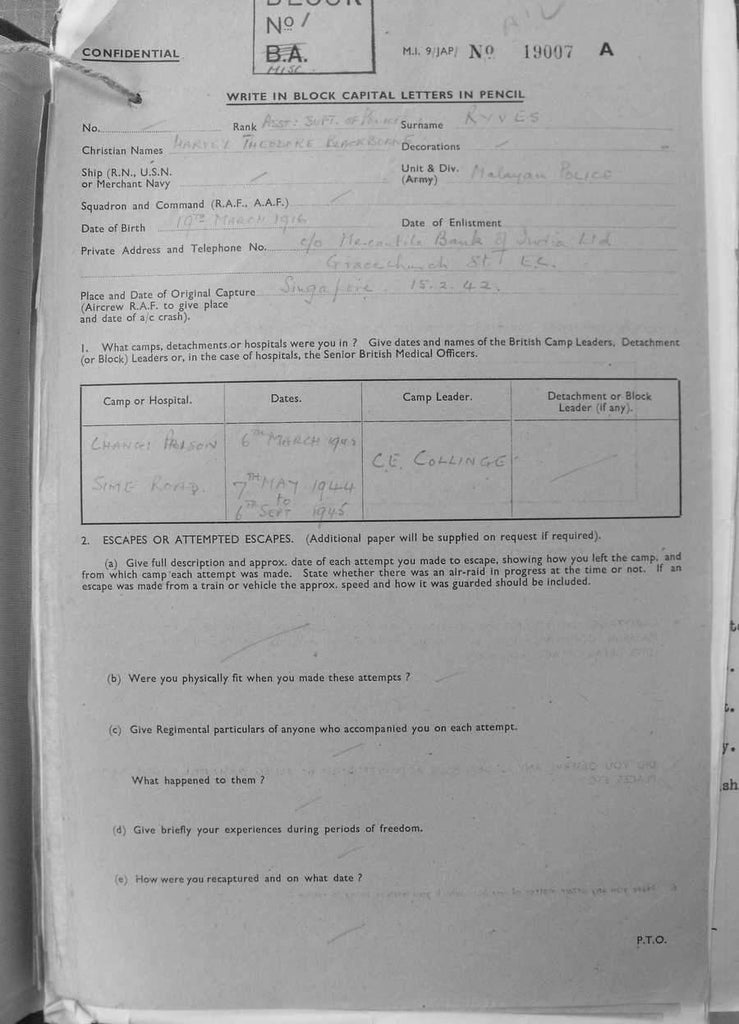 BLOCK
No /
B.A.
MISC
CONFIDENTIAL
M.I. 9/JAP/ No 19007 A
WRITE IN BLOCK CAPITAL LETTERS IN PENCIL
No. Rank ASST: SUPT. OF POLICE Surname RYVES
Christian Names HARVEY THEODORE BLACKBURNE Decorations
Ship (R.N., U.S.N. or Merchant Navy Unit & Div. (Army) Malayan POLICE
Squadron and Command (R.A.F., A.A.F.)
Date of Birth 19TH MARCH 1916 Date of Enlistment
Private Address and Telephone No. c/o Mercantile Bank of India Ltd
Gracechurch St. E.C.
Place and Date of Original Capture Singapore. 15.2.42.
(Aircrew R.A.F. to give place
and date of a/c crash).
1. What camps, detachments or hospitals were you in ? Give dates and names of the British Camp Leaders, Detachment
(or Block) Leaders or, in the case of hospitals, the Senior British Medical Officers.
Camp or Hospital. Dates. Camp Leader. Detachment or Block Leader (if any).
CHANGI PRISON 6TH MARCH
C.E. COLLINGE
SIME ROAD. 7TH MAY 1944
to
6TH SEPT 1945
2. ESCAPES OR ATTEMPTED ESCAPES. (Additional paper will be supplied on request if required).
(a) Give full description and approx. date of each attempt you made to escape, showing how you left the camp, and
from which camp each attempt was made. State whether there was an air-raid in progress at the time or not. If an
escape was made from a train or vehicle the approx. speed and how it was guarded should be included.
(b) Were you physically fit when you made these attempts ?
(c) Give Regimental particulars of anyone who accompanied you on each attempt.
What happened to them ?
(d) Give briefly your experiences during periods of freedom.
(e) How were you recaptured and on what date ?
P.T.O.